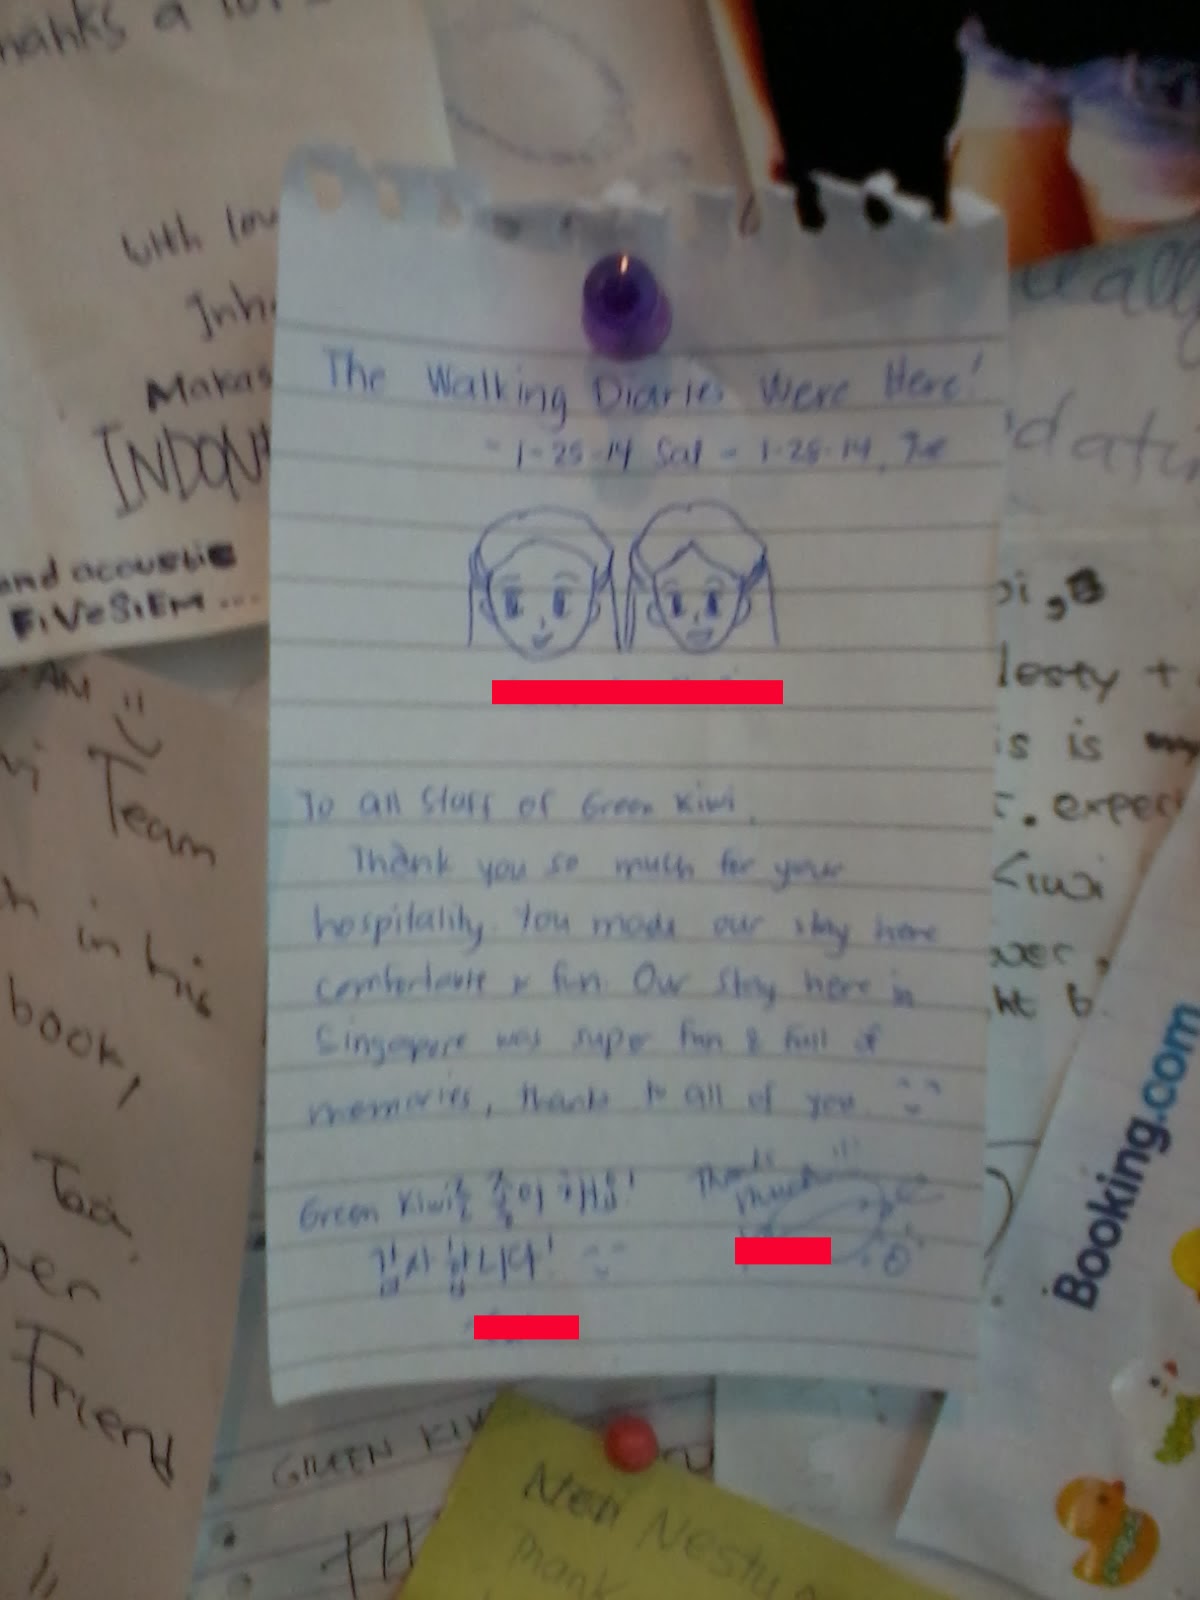 The Walking Diaries Were Here!
- 1-25-14 Sat - 1-28-14, Tue
To all Staff of Green Kiwi,
Thank you so much for your
hospitality. You made our stay here
comfortable & fun. Our stay here in
Singapore was super fun & full of
memories, thanks to all of you
Green Kiwi를 좋아해요!
감사합니다!
Thanks
Much
Thanks a lot
with
INDON
and acoustic
FiVeSiEM...
AM
Team
in his
book,
Too,
Friend
lesty +
is is
. expec
Kiwi
Booking.com
GREEN KIW
Neni Nesty